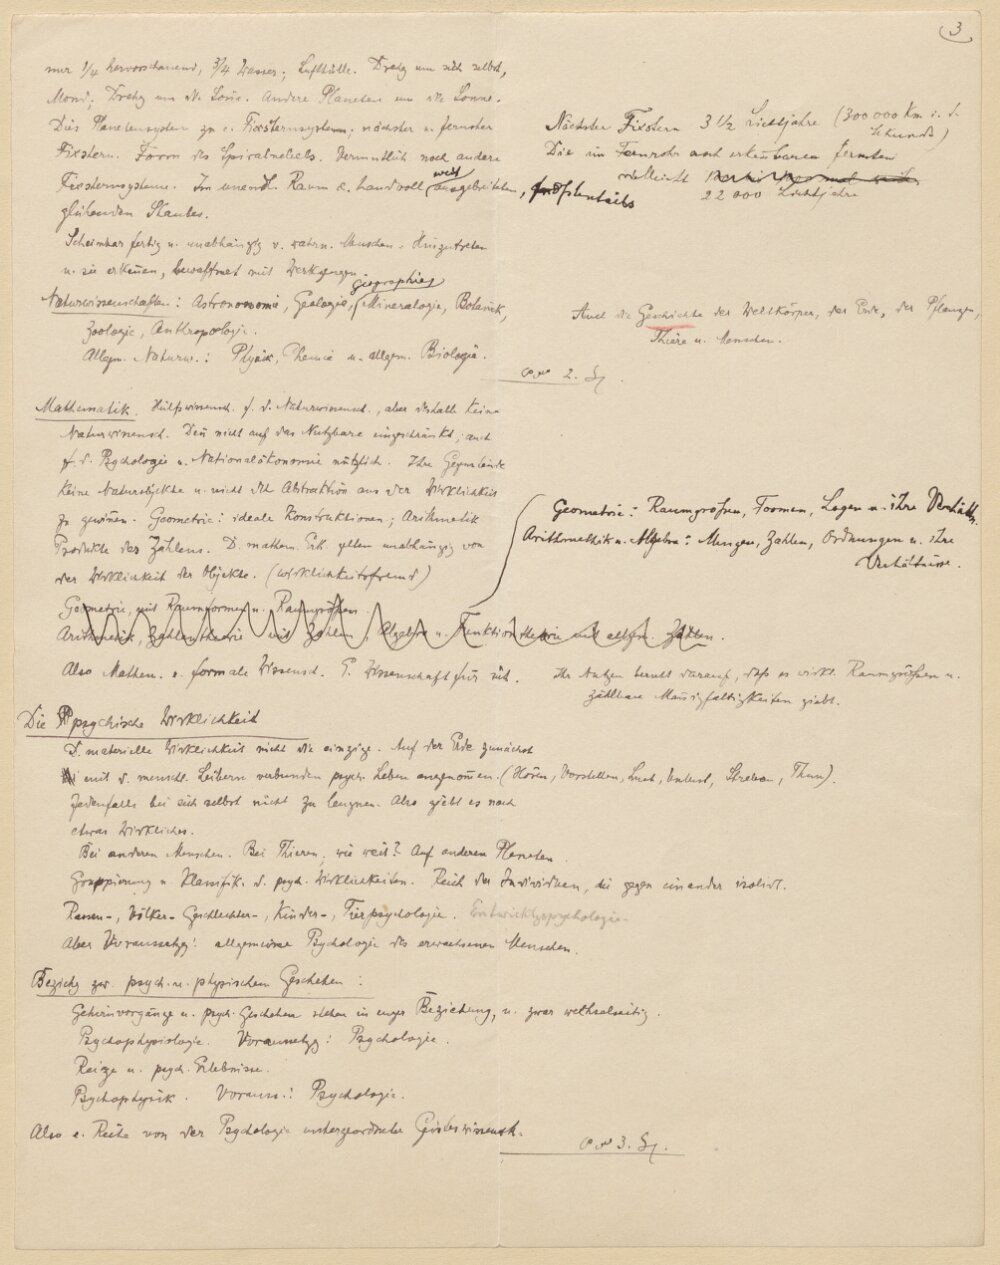 3
nur 1/4 hervorschauend, 3/4 Wasser; Lufthülle. Drehg um sich selbst,
Mond; Drehg um die Sonne. Andere Planeten um die Sonne.
Dies Planetensystem zu e. Fixsternsystem. nächster u. fernster
Fixstern. Form des Spiralnebels. Vermutlich noch andere
Fixsternsysteme. Im unendl. Raum e. handvoll weit ausgebreiteten,
glühenden Staubes.
Nächster Fixstern 3 1/2 Lichtjahre (300 000 Km i. d.
Sekunde)
Die im Fernrohr noch erkennbaren fernsten
vielleicht
22 000 Lichtjahre
Scheinbar fertig u. unabhängig v. wahrn. Menschen. Hinzutreten
u. sie erkennen, bewaffnet mit Werkzeugen.
Geographie
Naturwissenschaften: Astronomie, Geologie, Mineralogie, Botanik,
Zoologie, Anthropologie.
Allgem. Naturw.: Physik, Chemie u. allgem. Biologie.
Auch die Geschichte der Weltkörper, der Erde, der Pflanzen,
Thiere u. Menschen.
2. St.
Mathematik. Hülfswissensch. f. d. Naturwissensch., aber deshalb keine
Naturwissensch. Denn nicht auf das Nutzbare eingeschränkt; auch
f. d. Psychologie u. Nationalökonomie nützlich. Ihre Gegenstände
keine Naturobjekte u. nicht dch Abstraktion aus der Wirklichkeit
zu gewinnen. Geometrie: ideale Konstruktionen; Arithmetik
Produkte des Zählens. D. mathem. Erk. gelten unabhängig von
der Wirklichkeit der Objekte. (wirklichkeitsfremd)
Geometrie, mit Raumformen u. Raumgrößen.
Arithmetik, Zahlentheorie mit Zahlen, Algebra u. Funktionstheorie mit allgem. Zahlen.
Geometrie: Raumgrößen, Formen, Lagen u. ihre Verhältn.
Arithmethik u. Algebra: Mengen, Zahlen, Ordnungen u. ihre
Verhältnisse.
Also Mathem. e. formale Wissensch. E. Wissenschaft für sich.
Ihr Nutzen beruht darauf, daß es wirkl. Raumgrößen u.
zählbare Mannigfaltigkeiten giebt.
Die psychische Wirklichkeit
D. materielle Wirklichkeit nicht die einzige. Auf der Erde zunächst
mit d. menschl. Leibern verbunden psych. Leben angenommen. (Hören, Vorstellen, Lust, Unlust, Streben, Thun).
Jedenfalls bei sich selbst nicht zu leugnen. Also giebt es noch
etwas Wirkliches.
Bei anderen Menschen. Bei Thieren, wie weit? Auf anderen Planeten.
Gruppierung u. Klassifik. d. psych. Wirklichkeiten. Reich der Individuen, die gegen einander isoliert.
Rassen-, Völker- Geschlechter-, Kinder-, Tierpsychologie. Entwicklgspsychologie.
Aber Voraussetzg: allgemeine Psychologie des erwachsenen Menschen.
Beziehg zw. psych. u. physischem Geschehen:
Gehirnvorgänge u. psych. Geschehen stehen in enger Beziehung, u. zwar wechselseitig.
Psychophysiologie. Voraussetzg: Psychologie.
Reize u. psych. Erlebnisse.
Psychophysik. Vorauss.: Psychologie.
Also e. Reihe von der Psychologie untergeordnete Geisteswissensch.
3. St.